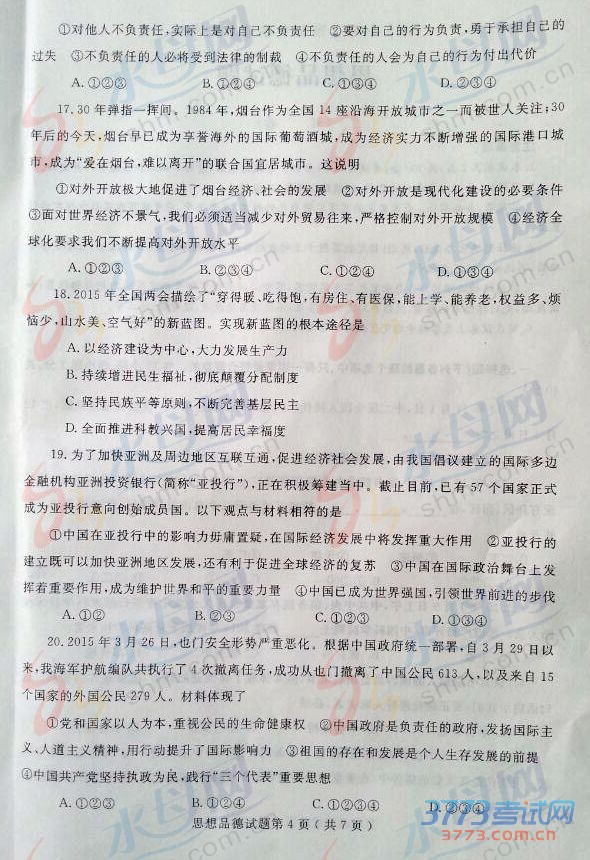 ①对他人不负责任,实际上是对自己不负责任　②要对自己的行为负责,勇于承担自己的
过失　③不负责任的人必将受到法律的制裁　④不负责任的人会为自己的行为付出代价
A.①②③　B.①②④　C.①③④　D.②③④
17.30 年弹指一挥间。1984 年,烟台作为全国 14 座沿海开放城市之一而被世人关注;30
年后的今天,烟台早已成为享誉海外的国际葡萄酒城,成为经济实力不断增强的国际港口城
市,成为“爱在烟台,难以离开”的联合国宜居城市。这说明
①对外开放极大地促进了烟台经济、社会的发展　②对外开放是现代化建设的必要条件
③面对世界经济不景气,我们必须适当减少对外贸易往来,严格控制对外开放规模　④经济全
球化要求我们不断提高对外开放水平
A.①②③　B.②③④　C.①③④　D.①②④
18.2015 年全国两会描绘了“穿得暖、吃得饱,有房住、有医保,能上学、能养老,权益多、烦
恼少,山水美、空气好”的新蓝图。实现新蓝图的根本途径是
A. 以经济建设为中心,大力发展生产力
B. 持续增进民生福祉,彻底颠覆分配制度
C. 坚持民族平等原则,不断完善基层民主
D. 全面推进科教兴国,提高居民幸福度
19.为了加快亚洲及周边地区互联互通,促进经济社会发展,由我国倡议建立的国际多边
金融机构亚洲投资银行(简称“亚投行”),正在积极筹建当中。截止目前,已有 57 个国家正式
成为亚投行意向创始成员国。以下观点与材料相符的是
①中国在亚投行中的影响力毋庸置疑,在国际经济发展中将发挥重大作用　②亚投行的
建立既可以加快亚洲地区发展,还有利于促进全球经济的复苏　③中国在国际政治舞台上发
挥着重要作用,成为维护世界和平的重要力量　④中国已成为世界强国,引领世界前进的步伐
A.①②　B.②③　C.①③　D.②④
20.2015 年 3 月 26 日,也门安全形势严重恶化。根据中国政府统一部署,自 3 月 29 日以
来,我海军护航编队共执行了 4 次撤离任务,成功从也门撤离了中国公民 613 人,以及来自 15
个国家的外国公民 279 人。材料体现了
①党和国家以人为本,重视公民的生命健康权　②中国政府是负责任的政府,发扬国际主
义、人道主义精神,用行动提升了国际影响力　③祖国的存在和发展是个人生存发展的前提
④中国共产党坚持执政为民,践行“三个代表”重要思想
A.①②③　B.①②④　C.①③④　D.②③④
思想品德试题第 4 页(共 7 页)
3773考试网
3773.com.cn
水母网
shm.com.cn